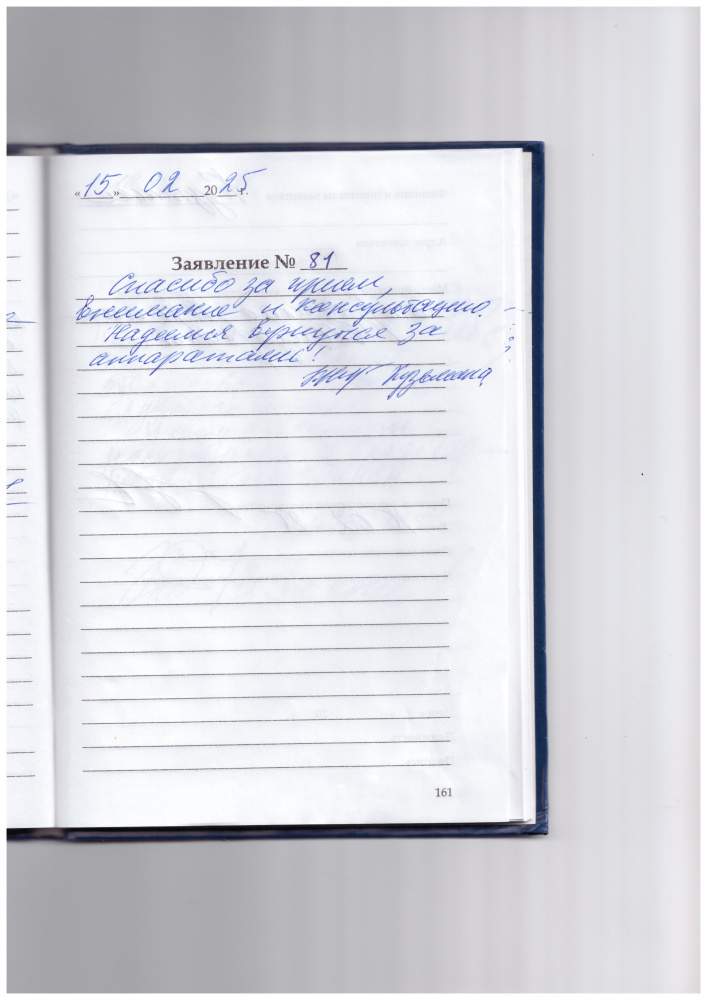 «15» 02 2025 г.
Заявление № 81
Спасибо за прием,
внимание и консультацию.
Надеемся вернуться за
аппаратами!
Кузьмина
161